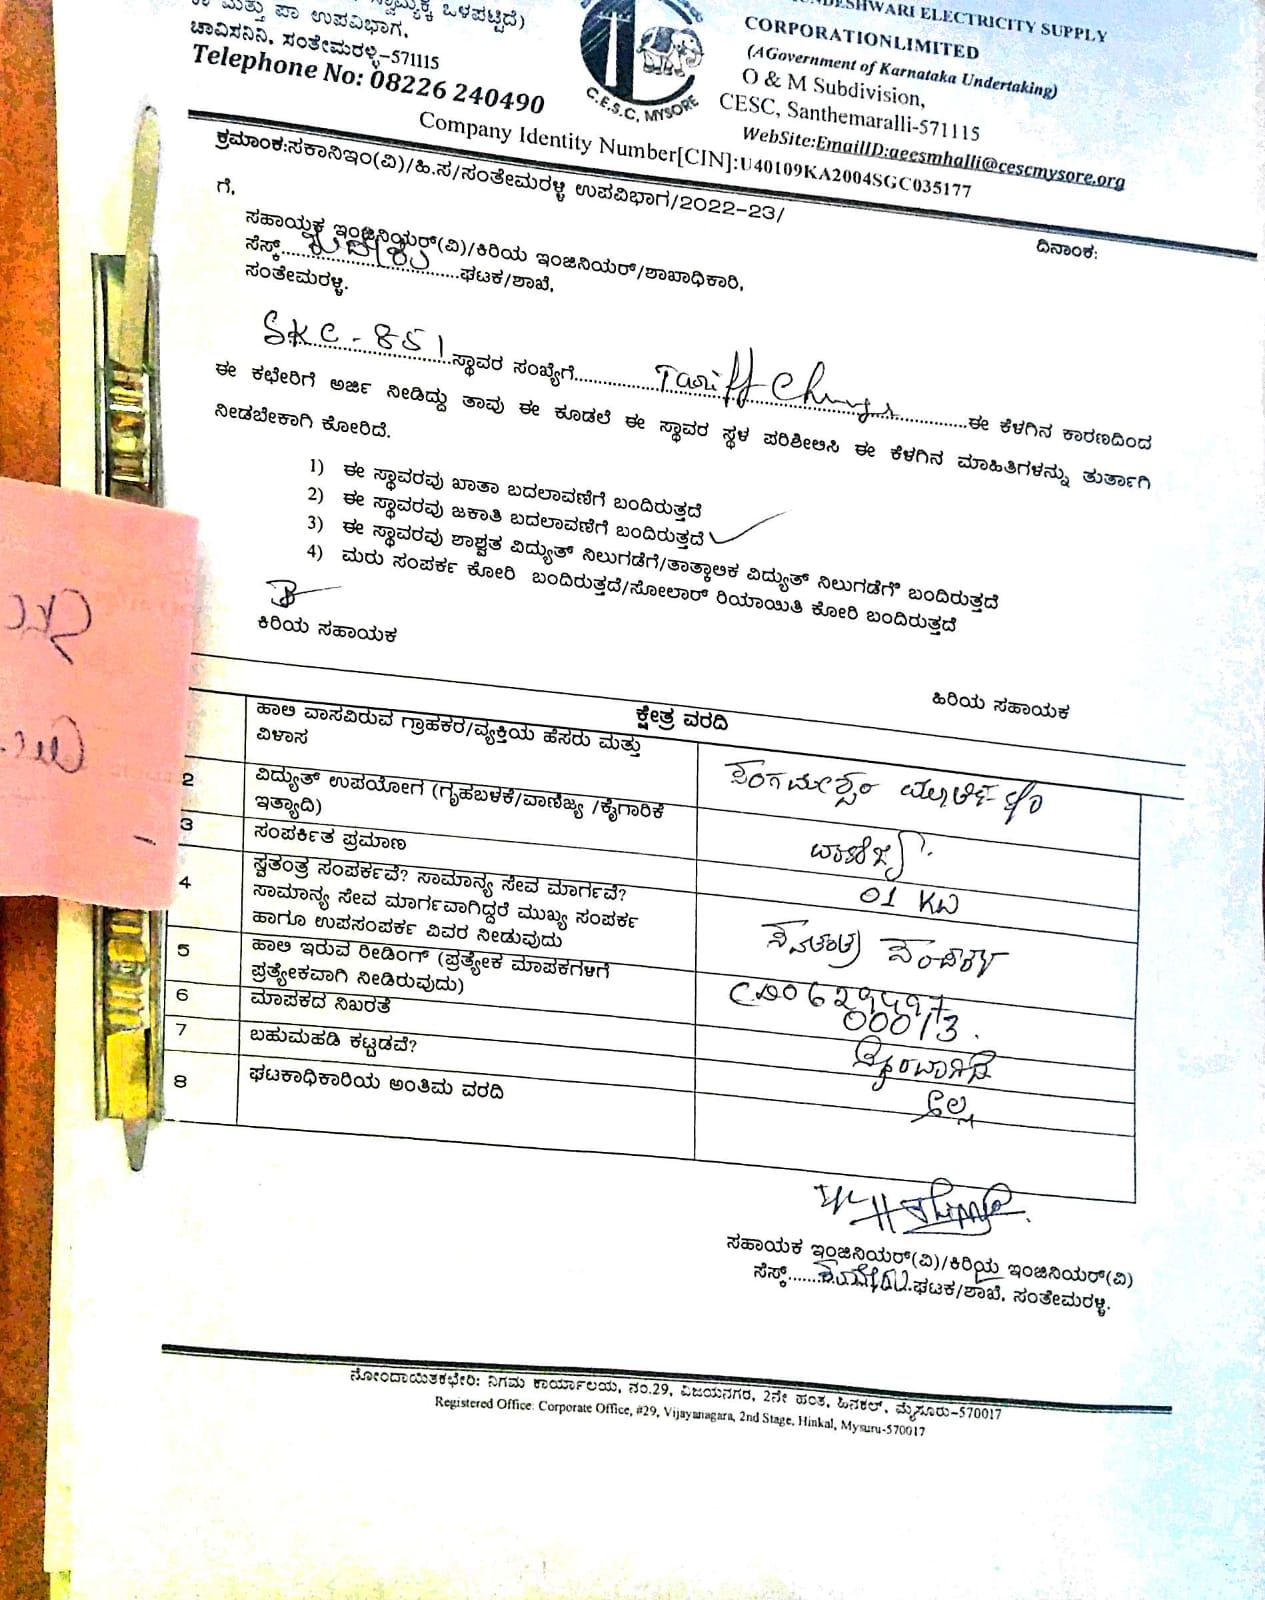 ಮತ್ತು ಪಾ ಉಪವಿಭಾಗ,
ಚಾವಿಸನಿನಿ, ಸಂತೇಮರಳ್ಳಿ-571115
Telephone No: 08226 240490
C.E.S.C, MYSORE
ELECTRICITY SUPPLY
CORPORATIONLIMITED
(AGovernment of Karnataka Undertaking)
O & M Subdivision,
CESC, Santhemaralli-571115
WebSite:EmailID:aeesmhalli@cescmysore.org
Company Identity Number[CIN]:U40109KA2004SGC035177
ಕ್ರಮಾಂಕ:ಸಕಾನಿಇಂ(ವಿ)/ಹಿ.ಸ/ಸಂತೇಮರಳ್ಳಿ ಉಪವಿಭಾಗ/2022-23/
ದಿನಾಂಕ:
ಗೆ,
ಸಹಾಯಕ ಇಂಜಿನಿಯರ್(ವಿ)/ಕಿರಿಯ ಇಂಜಿನಿಯರ್/ಶಾಖಾಧಿಕಾರಿ,
ಸೆಸ್ಕ್....................ಘಟಕ/ಶಾಖೆ,
ಸಂತೇಮರಳ್ಳಿ.
SKC-851 ಸ್ಥಾವರ ಸಂಖ್ಯೆಗೆ Tariff Change ಈ ಕೆಳಗಿನ ಕಾರಣದಿಂದ
ಈ ಕಛೇರಿಗೆ ಅರ್ಜಿ ನೀಡಿದ್ದು ತಾವು ಈ ಕೂಡಲೆ ಈ ಸ್ಥಾವರ ಸ್ಥಳ ಪರಿಶೀಲಿಸಿ ಈ ಕೆಳಗಿನ ಮಾಹಿತಿಗಳನ್ನು ತುರ್ತಾಗಿ
ನೀಡಬೇಕಾಗಿ ಕೋರಿದೆ.
1) ಈ ಸ್ಥಾವರವು ಖಾತಾ ಬದಲಾವಣೆಗೆ ಬಂದಿರುತ್ತದೆ
2) ಈ ಸ್ಥಾವರವು ಜಕಾತಿ ಬದಲಾವಣೆಗೆ ಬಂದಿರುತ್ತದೆ
3) ಈ ಸ್ಥಾವರವು ಶಾಶ್ವತ ವಿದ್ಯುತ್ ನಿಲುಗಡೆಗೆ/ತಾತ್ಕಾಲಿಕ ವಿದ್ಯುತ್ ನಿಲುಗಡೆಗೆ ಬಂದಿರುತ್ತದೆ
4) ಮರು ಸಂಪರ್ಕ ಕೋರಿ ಬಂದಿರುತ್ತದೆ/ಸೋಲಾರ್ ರಿಯಾಯಿತಿ ಕೋರಿ ಬಂದಿರುತ್ತದೆ
ಕಿರಿಯ ಸಹಾಯಕ
ಹಿರಿಯ ಸಹಾಯಕ
ಕ್ಷೇತ್ರ ವರದಿ
ಹಾಲಿ ವಾಸವಿರುವ ಗ್ರಾಹಕರ/ವ್ಯಕ್ತಿಯ ಹೆಸರು ಮತ್ತು
ವಿಳಾಸ
2 ವಿದ್ಯುತ್ ಉಪಯೋಗ (ಗೃಹಬಳಕೆ/ವಾಣಿಜ್ಯ /ಕೈಗಾರಿಕೆ
ಇತ್ಯಾದಿ)
ವಾಣಿಜ್ಯ
3 ಸಂಪರ್ಕಿತ ಪ್ರಮಾಣ
01 KW
4 ಸ್ವತಂತ್ರ ಸಂಪರ್ಕವೆ? ಸಾಮಾನ್ಯ ಸೇವ ಮಾರ್ಗವೆ?
ಸಾಮಾನ್ಯ ಸೇವ ಮಾರ್ಗವಾಗಿದ್ದರೆ ಮುಖ್ಯ ಸಂಪರ್ಕ
ಹಾಗೂ ಉಪಸಂಪರ್ಕ ವಿವರ ನೀಡುವುದು
ಸ್ವತಂತ್ರ ಸಂಪರ್ಕ
5 ಹಾಲಿ ಇರುವ ರೀಡಿಂಗ್ (ಪ್ರತ್ಯೇಕ ಮಾಪಕಗಳಿಗೆ
ಪ್ರತ್ಯೇಕವಾಗಿ ನೀಡಿರುವುದು)
00013
6 ಮಾಪಕದ ನಿಖರತೆ
7 ಬಹುಮಹಡಿ ಕಟ್ಟಡವೆ?
ಇಲ್ಲ
8 ಘಟಕಾಧಿಕಾರಿಯ ಅಂತಿಮ ವರದಿ
ಸಹಾಯಕ ಇಂಜಿನಿಯರ್(ವಿ)/ಕಿರಿಯ ಇಂಜಿನಿಯರ್(ವಿ)
ಸೆಸ್ಕ್.......ಘಟಕ/ಶಾಖೆ, ಸಂತೇಮರಳ್ಳಿ.
ನೋಂದಾಯಿತಕಛೇರಿ: ನಿಗಮ ಕಾರ್ಯಾಲಯ, ನಂ.29, ವಿಜಯನಗರ, 2ನೇ ಹಂತ, ಹಿನಕಲ್, ಮೈಸೂರು-570017
Registered Office: Corporate Office, #29, Vijayanagara, 2nd Stage, Hinkal, Mysuru-570017